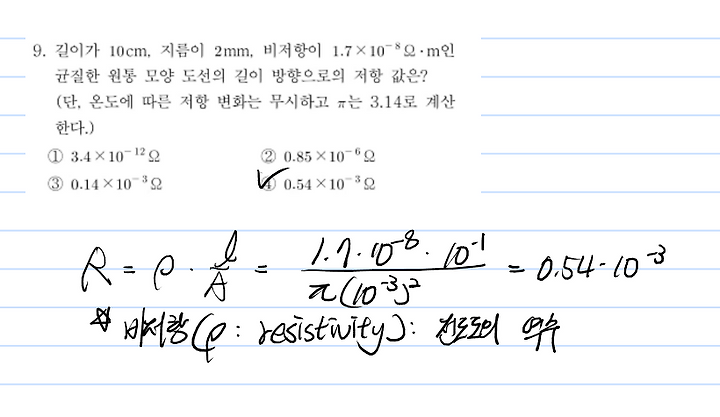 9. 길이가 10cm, 지름이 2mm, 비저항이 1.7×10⁻⁸Ω·m인
균질한 원통 모양 도선의 길이 방향으로의 저항 값은?
(단, 온도에 따른 저항 변화는 무시하고 π는 3.14로 계산
한다.)
① 3.4×10⁻¹²Ω ② 0.85×10⁻⁶Ω
③ 0.14×10⁻³Ω ④ 0.54×10⁻³Ω
R = ρ · l/A = 1.7·10⁻⁸·10⁻¹ / π(10⁻³)² = 0.54·10⁻³
☆ 비저항(ρ : resistivity) : 전도도의 역수